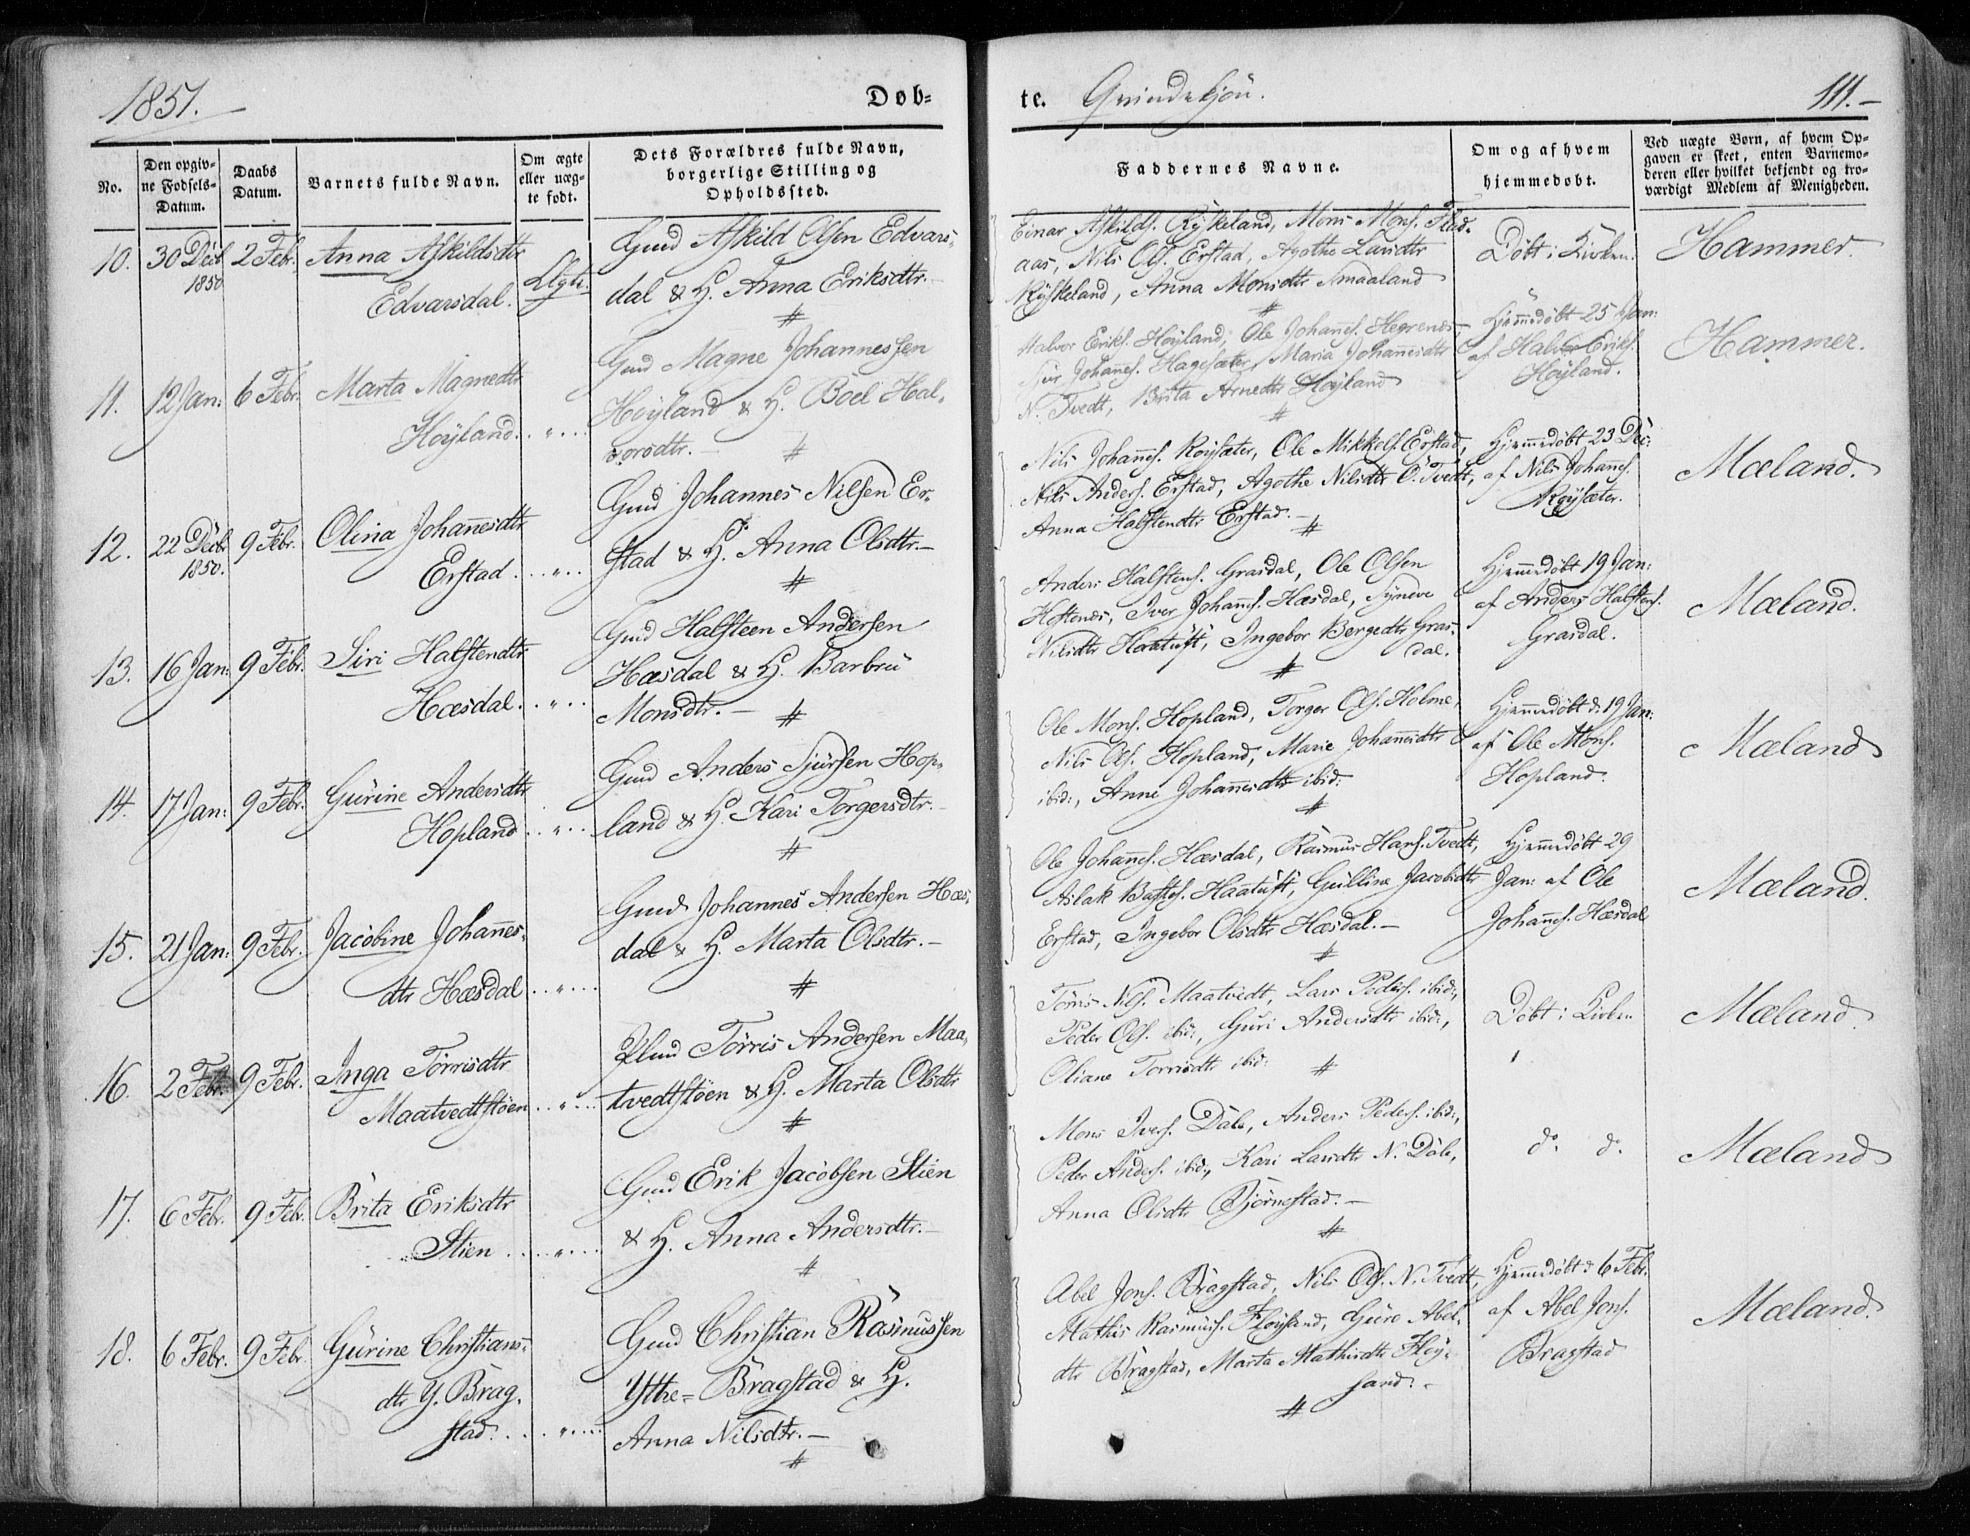 1851.
Døb-
te. Qvindekjön.
111.
No.
Den opgiv-
ne Fødsels-
Datum.
Daabs
Datum.
Barnets fulde Navn.
Om ægte
eller uæg-
te født.
Dets Forældres fulde Navn,
borgerlige Stilling og
Opholdssted.
Faddernes Navne.
Om og af hvem
hjemmedøbt.
Ved uægte Børn, af hvem Op-
gaven er skeet, enten Barnemo-
deren eller hvilket bekjendt og tro-
værdigt Medlem af Menigheden.
10. 30 Decb 1850 2 Febr. Anna Askildsdtr
Edvarsdal. Ægte.
Gmd Askild Olsen Edvars-
dal & H. Anna Eriksdtr.
Einar Askilds. Ryskeland, Mons Mons.
aas, Nils Ols. Erstad, Agothe Larsdtr
Ryskeland, Anna Monsdtr Smaaland
Døbt i Kirken.
Hammer.
11. 12 Jan: 6 Febr. Marta Magnedtr
Høyland. "
Gmd Magne Johannessen
Høyland & H. Boel Hal-
vorsdtr.
Halvor Eriks. Høyland, Ole Johans. Hegrenes,
Sjur Johans. Hagesæter, Maria Johannesdtr
N. Tvedt, Brita Arnedtr Høyland
Hjemmedøbt 25 Jan:
af Halvor Eriks.
Høyland.
Hammer.
12. 22 Decbr 1850. 9 Febr. Olina Johannesdtr
Erstad. "
Gmd Johannes Nilsen Er-
stad & H. Anna Olsdtr.
Nils Johans. Røysæter, Ole Mikkels. Erstad,
Nils Anders. Erstad, Agothe Nilsdtr Ö. Tvedt,
Anna Halstendtr Erstad.
Hjemmedøbt 23 Dec:
af Nils Johans.
Røysæter.
Mæland.
13. 16 Jan: 9 Febr. Siri Halstendtr
Hæsdal. "
Gmd Halsteen Andersen
Hæsdal & H. Barbru
Monsdtr.
Anders Halstens. Grasdal, Ole Olsen
Hostenes, Iver Johans. Hæsdal, Synneve
Nilsdtr Haatuft, Ingebor Bergedtr Gras-
dal.
Hjemmedøbt 19 Jan:
af Anders Halstens.
Grasdal.
Mæland.
14. 17 Jan: 9 Febr. Gürine Andersdtr
Hopland "
Gmd Anders Sjursen Hop-
land & H. Kari Torgersdtr.
Ole Mons. Hopland, Torger Ols. Holme,
Nils Ols. Hopland, Marie Johannesdtr
ibid:, Anne Johannesdtr ibid:
Hjemmedøbt d: 19 Jan:
af Ole Mons.
Hopland.
Mæland
15. 21 Jan: 9 Febr. Jacobine Johannes-
dtr Hæsdal "
Gmd Johannes Andersen Hæs-
dal & H. Marta Olsdtr.
Ole Johans. Hæsdal, Rasmus Hans. Tvedt,
Aslak Haatuft, Gulline Jacobsdtr
Erstad, Ingebor Olsdtr Hæsdal.
Hjemmedøbt 29
Jan: af Ole
Johans. Hæsdal
Mæland.
16. 2 Febr. 9 Febr. Inga Törrisdtr
Maatvedtstöen "
Plmd Törris Andersen Maa-
tvedtstöen & H. Marta Olsdtr
Törris Nils. Maatvedt, Lars Peders. ibid:,
Peder Ols. ibid:, Guri Andersdtr ibid:,
Oliane Torrisdtr ibid:
Døbt i Kirken
Mæland.
17. 6 Febr. 9 Febr. Brita Eriksdtr
Stien "
Gmd Erik Jacobsen Stien
& H. Anna Andersdtr.
Mons Ivers. Dale, Anders Peders. ibid:,
Peder Anders. ibid:, Kari Larsdtr N. Dale,
Anna Olsdtr Bjørnestad.
do. do.
Mæland
18. 6 Febr. 9 Febr. Gürine Christians-
dtr Y. Brag-
stad. "
Gmd Christian Rasmussen
Ytre-Bragstad & H.
Anna Nilsdtr.
Abel Jons. Bragstad, Nils Ols. N. Tvedt,
Mathis Rasmus. Fløysand, Guro Abel-
dtr Bragstad, Marta Mathisdtr Fløy-
sand.
Hjemmedøbt d: 6 Febr.
af Abel Jons.
Bragstad
Mæland.